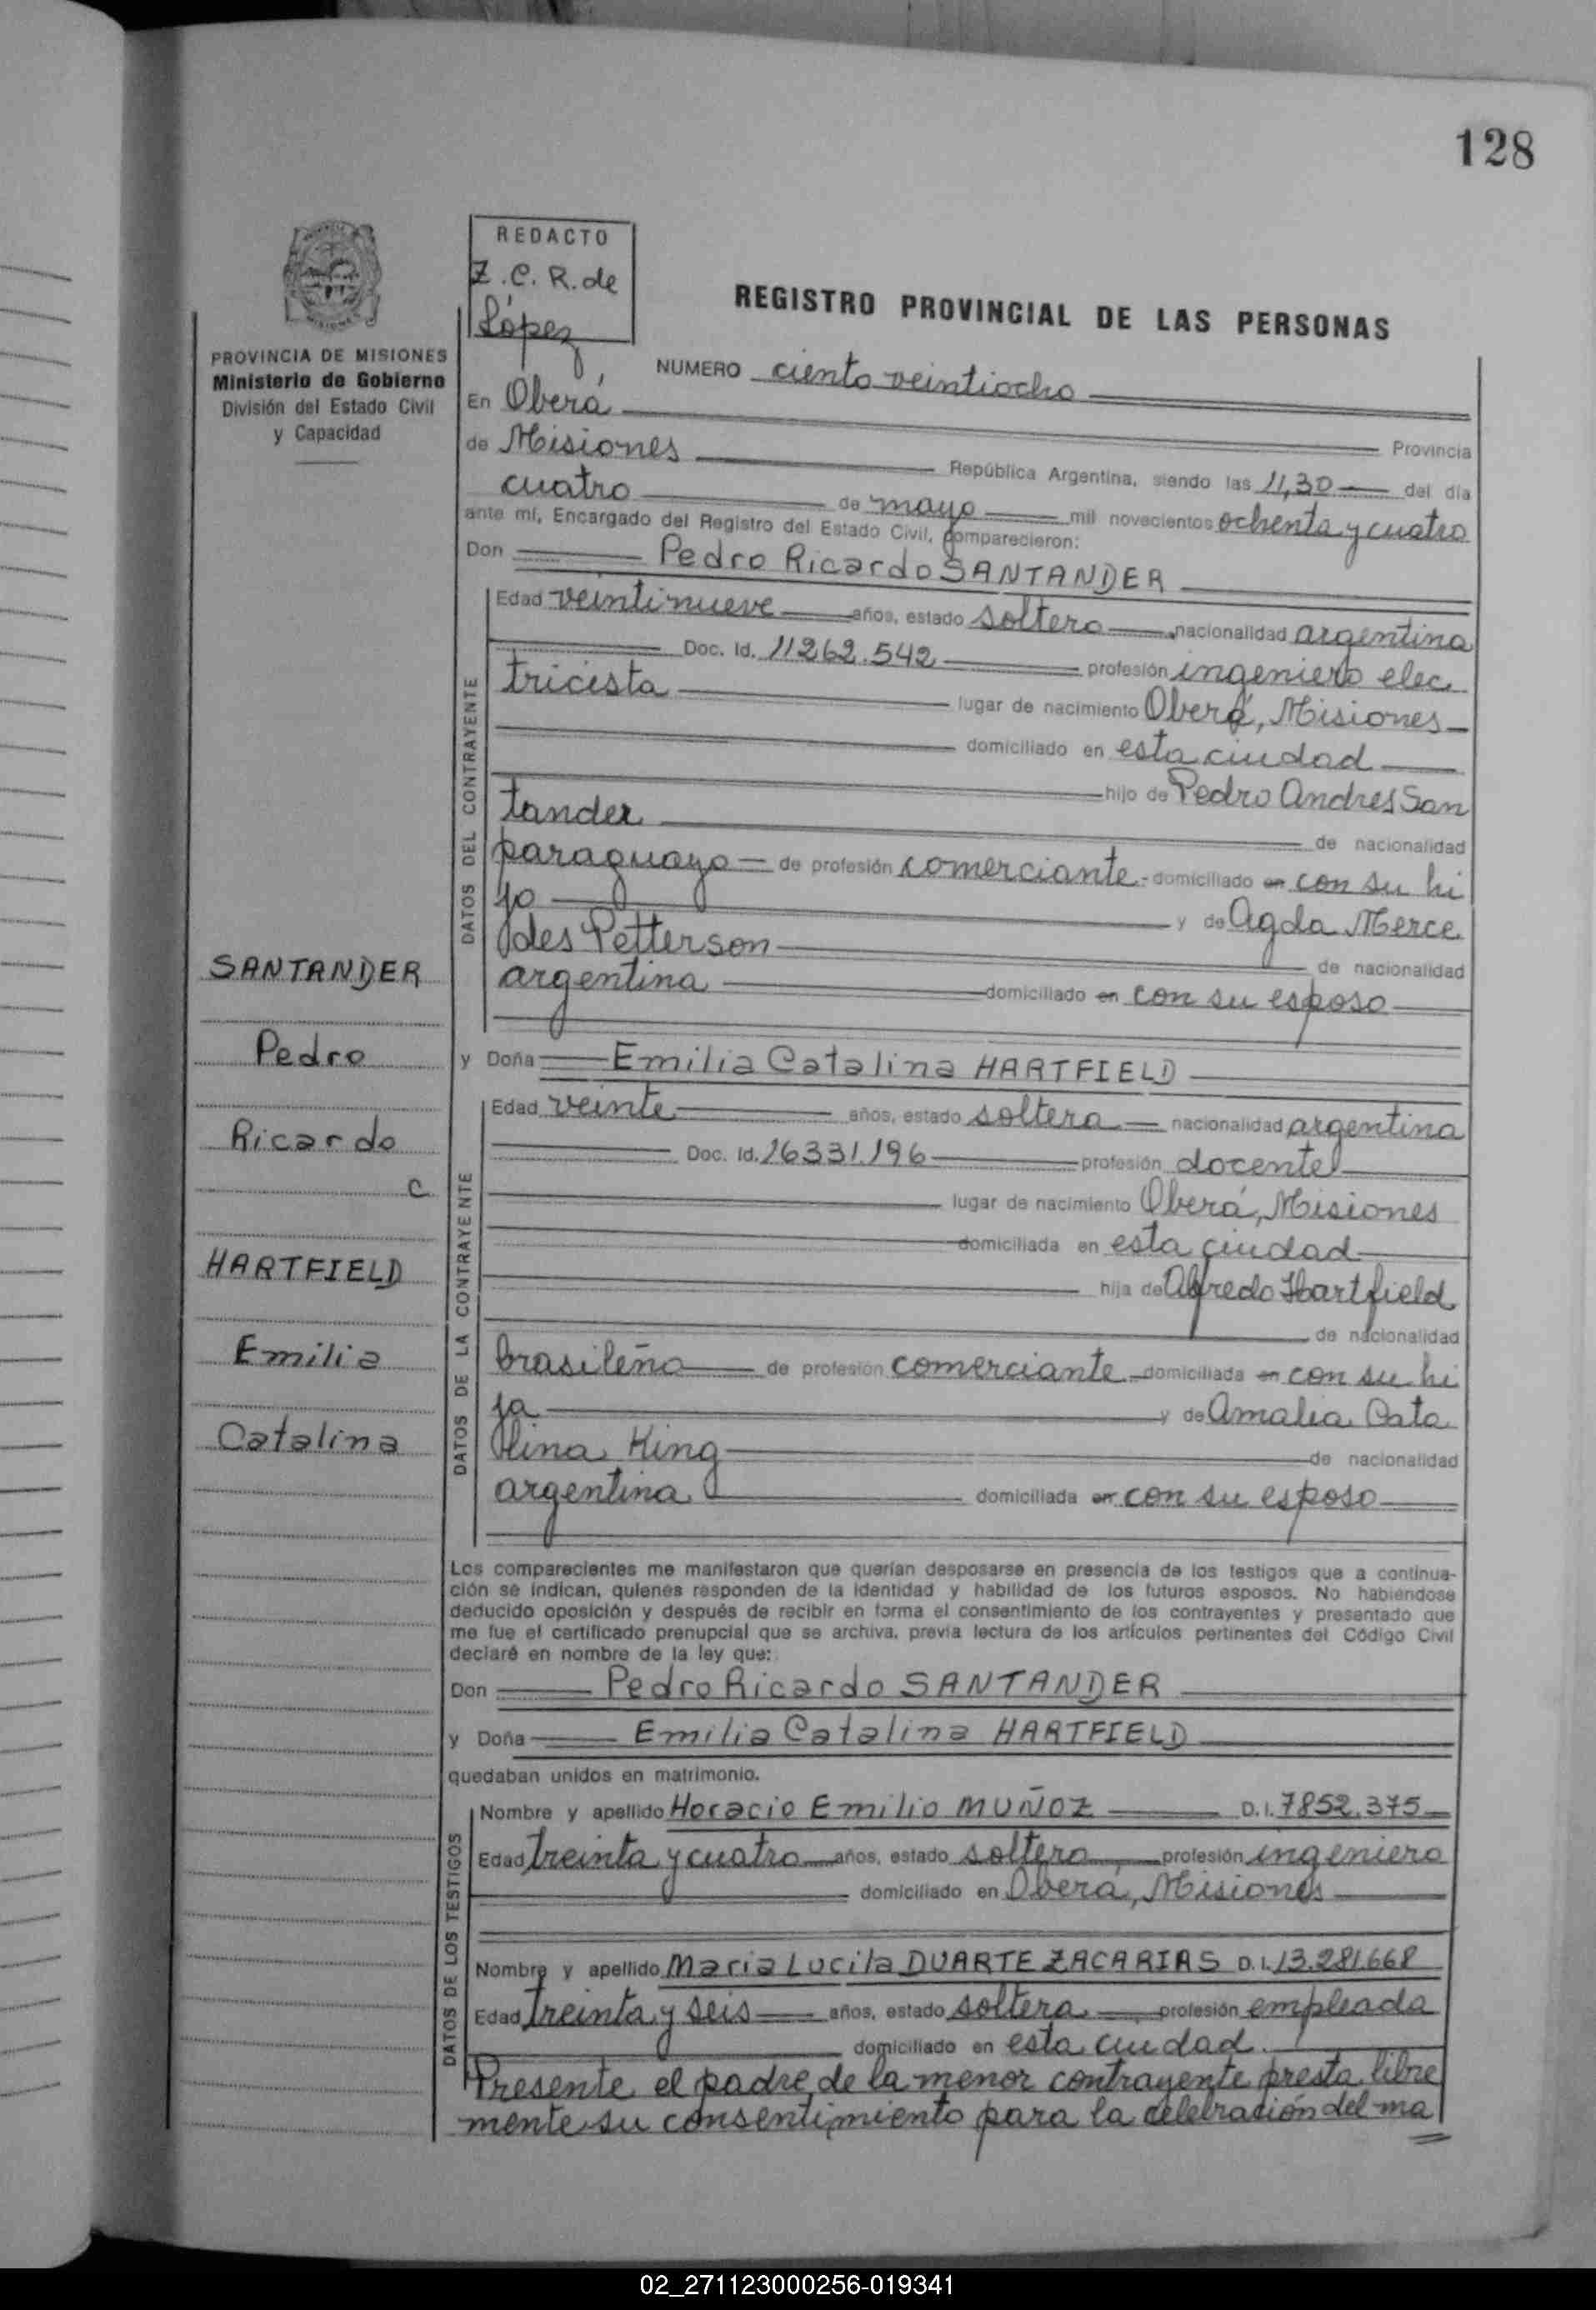 128
REDACTO
Z. C. R. de
López
REGISTRO PROVINCIAL DE LAS PERSONAS
PROVINCIA DE MISIONES
Ministerio de Gobierno
División del Estado Civil
y Capacidad
NUMERO ciento veintiocho
En Oberá
Provincia
de Misiones República Argentina, siendo las 11,30 del día
cuatro de mayo mil novecientos ochenta y cuatro
ante mí, Encargado del Registro del Estado Civil, comparecieron:
Don Pedro Ricardo SANTANDER
DATOS DEL CONTRAYENTE
Edad veintinueve años, estado soltero nacionalidad argentina
Doc. Id. 11262.542 profesión ingeniero elec
tricista lugar de nacimiento Oberá, Misiones
domiciliado en esta ciudad
hijo de Pedro Andres San
tander de nacionalidad
paraguayo de profesión comerciante domiciliado en con su hi
jo y de Agda Merce
des Petterson de nacionalidad
argentina domiciliado en con su esposo
y Doña Emilia Catalina HARTFIELD
DATOS DE LA CONTRAYENTE
Edad veinte años, estado soltera nacionalidad argentina
Doc. Id. 16331.196 profesión docente
lugar de nacimiento Oberá, Misiones
domiciliada en esta ciudad
hija de Alfredo Hartfield
de nacionalidad
brasileña de profesión comerciante domiciliada en con su hi
ja y de Amalia Cata
lina King de nacionalidad
argentina domiciliada en con su esposo
SANTANDER
Pedro
Ricardo
c
HARTFIELD
Emilia
Catalina
Los comparecientes me manifestaron que querían desposarse en presencia de los testigos que a continua-
ción se indican, quienes responden de la identidad y habilidad de los futuros esposos. No habiéndose
deducido oposición y después de recibir en forma el consentimiento de los contrayentes y presentado que
me fue el certificado prenupcial que se archiva, previa lectura de los artículos pertinentes del Código Civil
declaré en nombre de la ley que:
Don Pedro Ricardo SANTANDER
y Doña Emilia Catalina HARTFIELD
quedaban unidos en matrimonio.
DATOS DE LOS TESTIGOS
Nombre y apellido Horacio Emilio MUÑOZ D.I. 7852.375
Edad treinta y cuatro años, estado soltero profesión ingeniero
domiciliado en Oberá, Misiones
Nombre y apellido Maria Lucila DUARTE ZACARIAS D.I. 13.281.668
Edad treinta y seis años, estado soltera profesión empleada
domiciliado en esta ciudad.
Presente el padre de la menor contrayente presta libre
mente su consentimiento para la celebración del ma
02_271123000256-019341